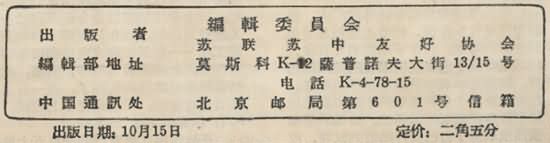 編輯委員会
出版者
苏联苏中友好协会
編輯部地址 莫斯科K-12薩普諾夫大街13/15号
电話 K-4-78-15
中国通訊处 北京邮局第601号信箱
出版日期: 10月15日 定价: 二角五分